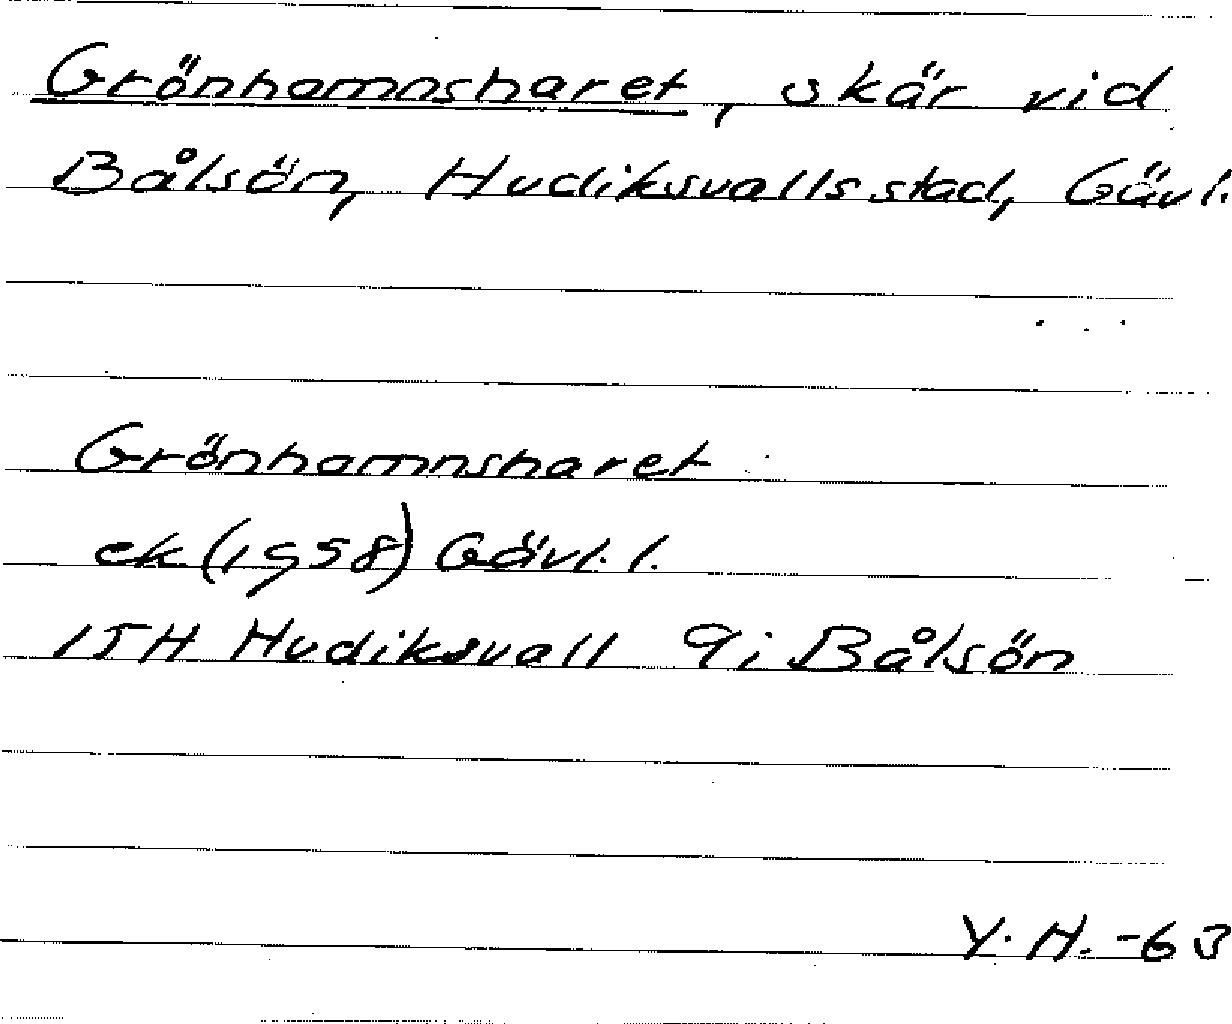 Grönhamnsharet, skär vid
Bålsön, Hudiksvalls stad, Gävl.
Grönhamnsharet
ek (1958) Gävl. l.
15H Hudiksvall 9i Bålsön
Y. H. -63